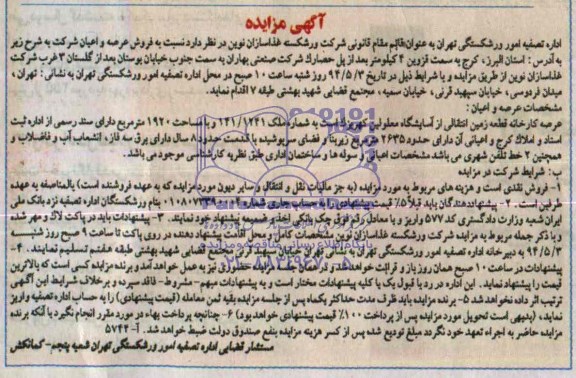 آگهی مزایده
اداره تصفیه امور ورشکستگی تهران به عنوان قائم مقام قانونی شرکت ورشکسته غذاسازان نوین در نظر دارد نسبت به فروش عرصه و اعیان شرکت به شرح زیر
به آدرس : استان البرز، کرج به سمت قزوین ۴ کیلومتر بعد از پل حصارک شرکت صنعتی بهاران به سمت جنوب خیابان بوستان بعد از گلستان ۳ غرب شرکت
غذاسازان نوین از طریق مزایده و با شرایط ذیل در تاریخ ۹۴/۵/۳ روز شنبه ساعت ۱۰ صبح در محل اداره تصفیه امور ورشکستگی تهران به نشانی : تهران ،
میدان فردوسی ، خیابان سپهبد قرنی ، خیابان سمیه ، مجتمع قضایی شهید بهشتی طبقه ۷ اقدام نماید.
مشخصات عرصه و اعیان :
عرصه کارخانه قطعه زمین انتقالی از آسایشگاه معلولین کهریزک است به شماره ملک ۱۲۴۱/۱۴۱ و با مساحت ۱۹۲۰ مترمربع دارای سند رسمی از اداره ثبت
اسناد و املاک کرج و اعیانی آن دارای حدود ۲۶۳۵ مترمربع زیربنا و فضای سرپوشیده با قدمت حدود ۸ سال دارای برق سه فاز، انشعاب آب و فاضلاب و
همچنین ۲ خط تلفن شهری می باشد مشخصات اعیانی و سوله ها و ساختمان اداری طبق نظریه کارشناسی موجود می باشد.
ب : شرایط شرکت در مزایده
۱- فروش نقدی است و هزینه های مربوط به مورد مزایده (به جز مالیات نقل و انتقال و سایر دیون مورد مزایده که به عهده فروشنده است) بالمناصفه به عهده
طرفین است. ۲- پیشنهاددهندگان باید قبلاً ۵٪ قیمت پیشنهادی را به حساب جاری شماره بنام ورشکستگان اداره تصفیه نزد بانک ملی
ایران شعبه وزارت دادگستری کد ۵۷۷ واریز و یا معادل رقم فوق چک بانکی اخذ و ضمیمه پیشنهاد خود نمایند. ۳- پیشنهادات باید در پاکت لاک و مهر شده
و با ذکر جمله مربوط به مزایده شرکت ورشکسته غذاسازان نوین مشخصات کامل و محل اقامت پیشنهاد دهنده در روی پاکت تا ساعت ۹ صبح روز شنبه
۹۴/۵/۳ به دبیرخانه اداره تصفیه امور ورشکستگی تهران به نشانی تهران خیابان سپهبد قرنی مجتمع قضایی شهید بهشتی طبقه هفتم تسلیم نمایند. ۴-
پیشنهادات در ساعت ۱۰ صبح همان روز باز و قرائت خواهد شد و از برنده مزایده به عمل خواهد آمد و برنده مزایده کسی است که بالاترین
قیمت را پیشنهاد نماید. این اداره در رد یا قبول یک یا کلیه پیشنهادات مختار است و به پیشنهادات مبهم - مشروط - فاقد سپرده و برخلاف شرایط این آگهی
ترتیب اثر داده نخواهد شد ۵- برنده مزایده باید ظرف مدت حداکثر یکماه پس از جلسه مزایده بقیه ثمن معامله (قیمت پیشنهادی) را به حساب اداره تصفیه واریز
نماید، (بدیهی است تحویل مورد مزایده پس از پرداخت ۱۰۰٪ قیمت پیشنهادی خواهد بود) ۶- چنانچه پرداخت بهاء در مورد مقرر انجام نگیرد یا آنکه برنده
مزایده حاضر به اجراء تعهد خود نگردد مبلغ تودیع شده پس از کسر هزینه مزایده بنفع صندوق دولت ضبط خواهد شد. آ- ۵۷۴۴
مستشار قضایی اداره تصفیه امور ورشکستگی تهران شعبه پنجم - کمانکش